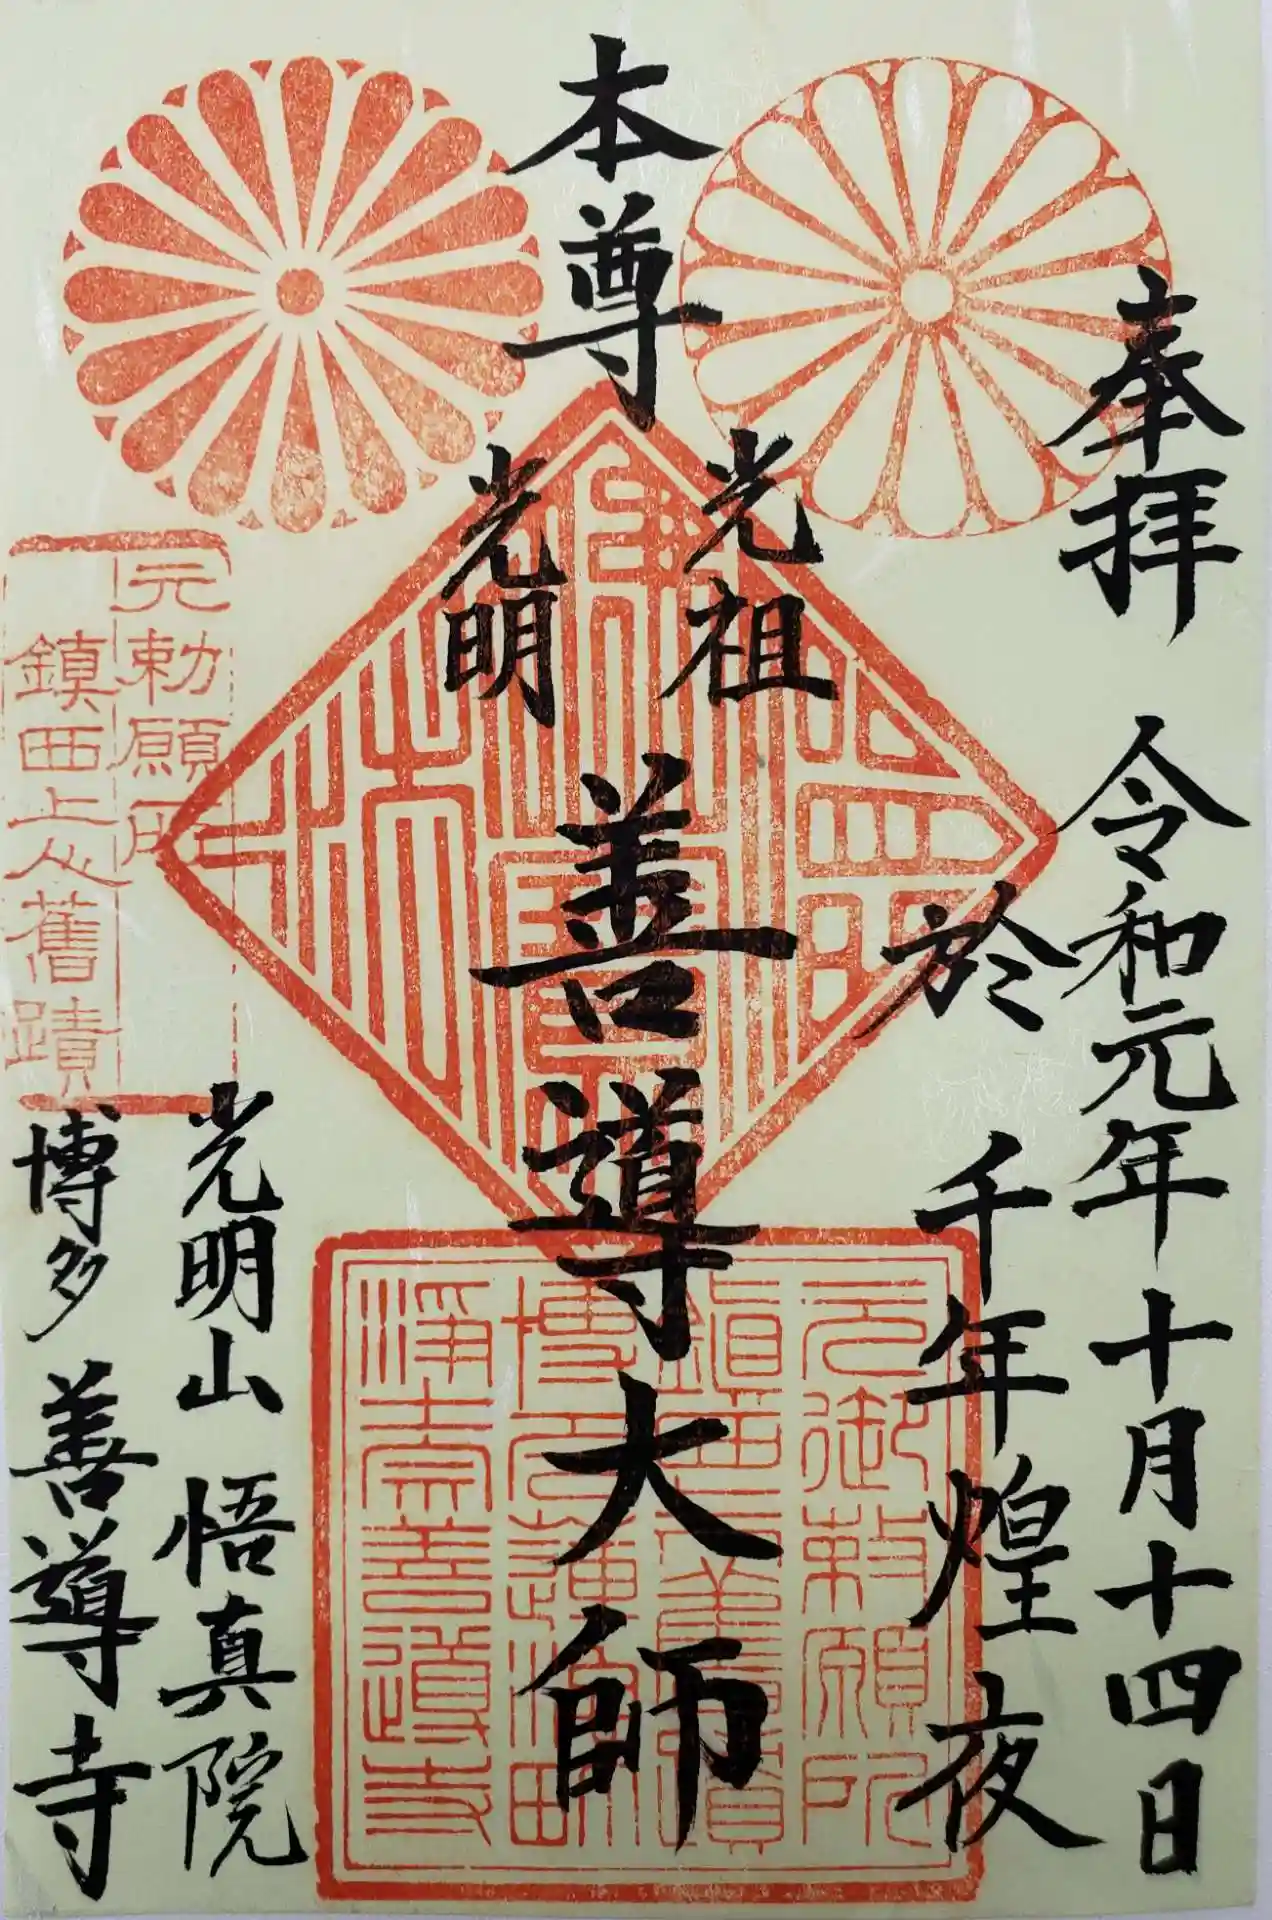 奉拝
令和元年十月十四日
於
千年煌夜
本尊
光祖
光明
善導大師
元勅願所
鎮西上人舊蹟
光明山 悟真院
博多 善導寺
元御勅願所
浄土宗善導寺